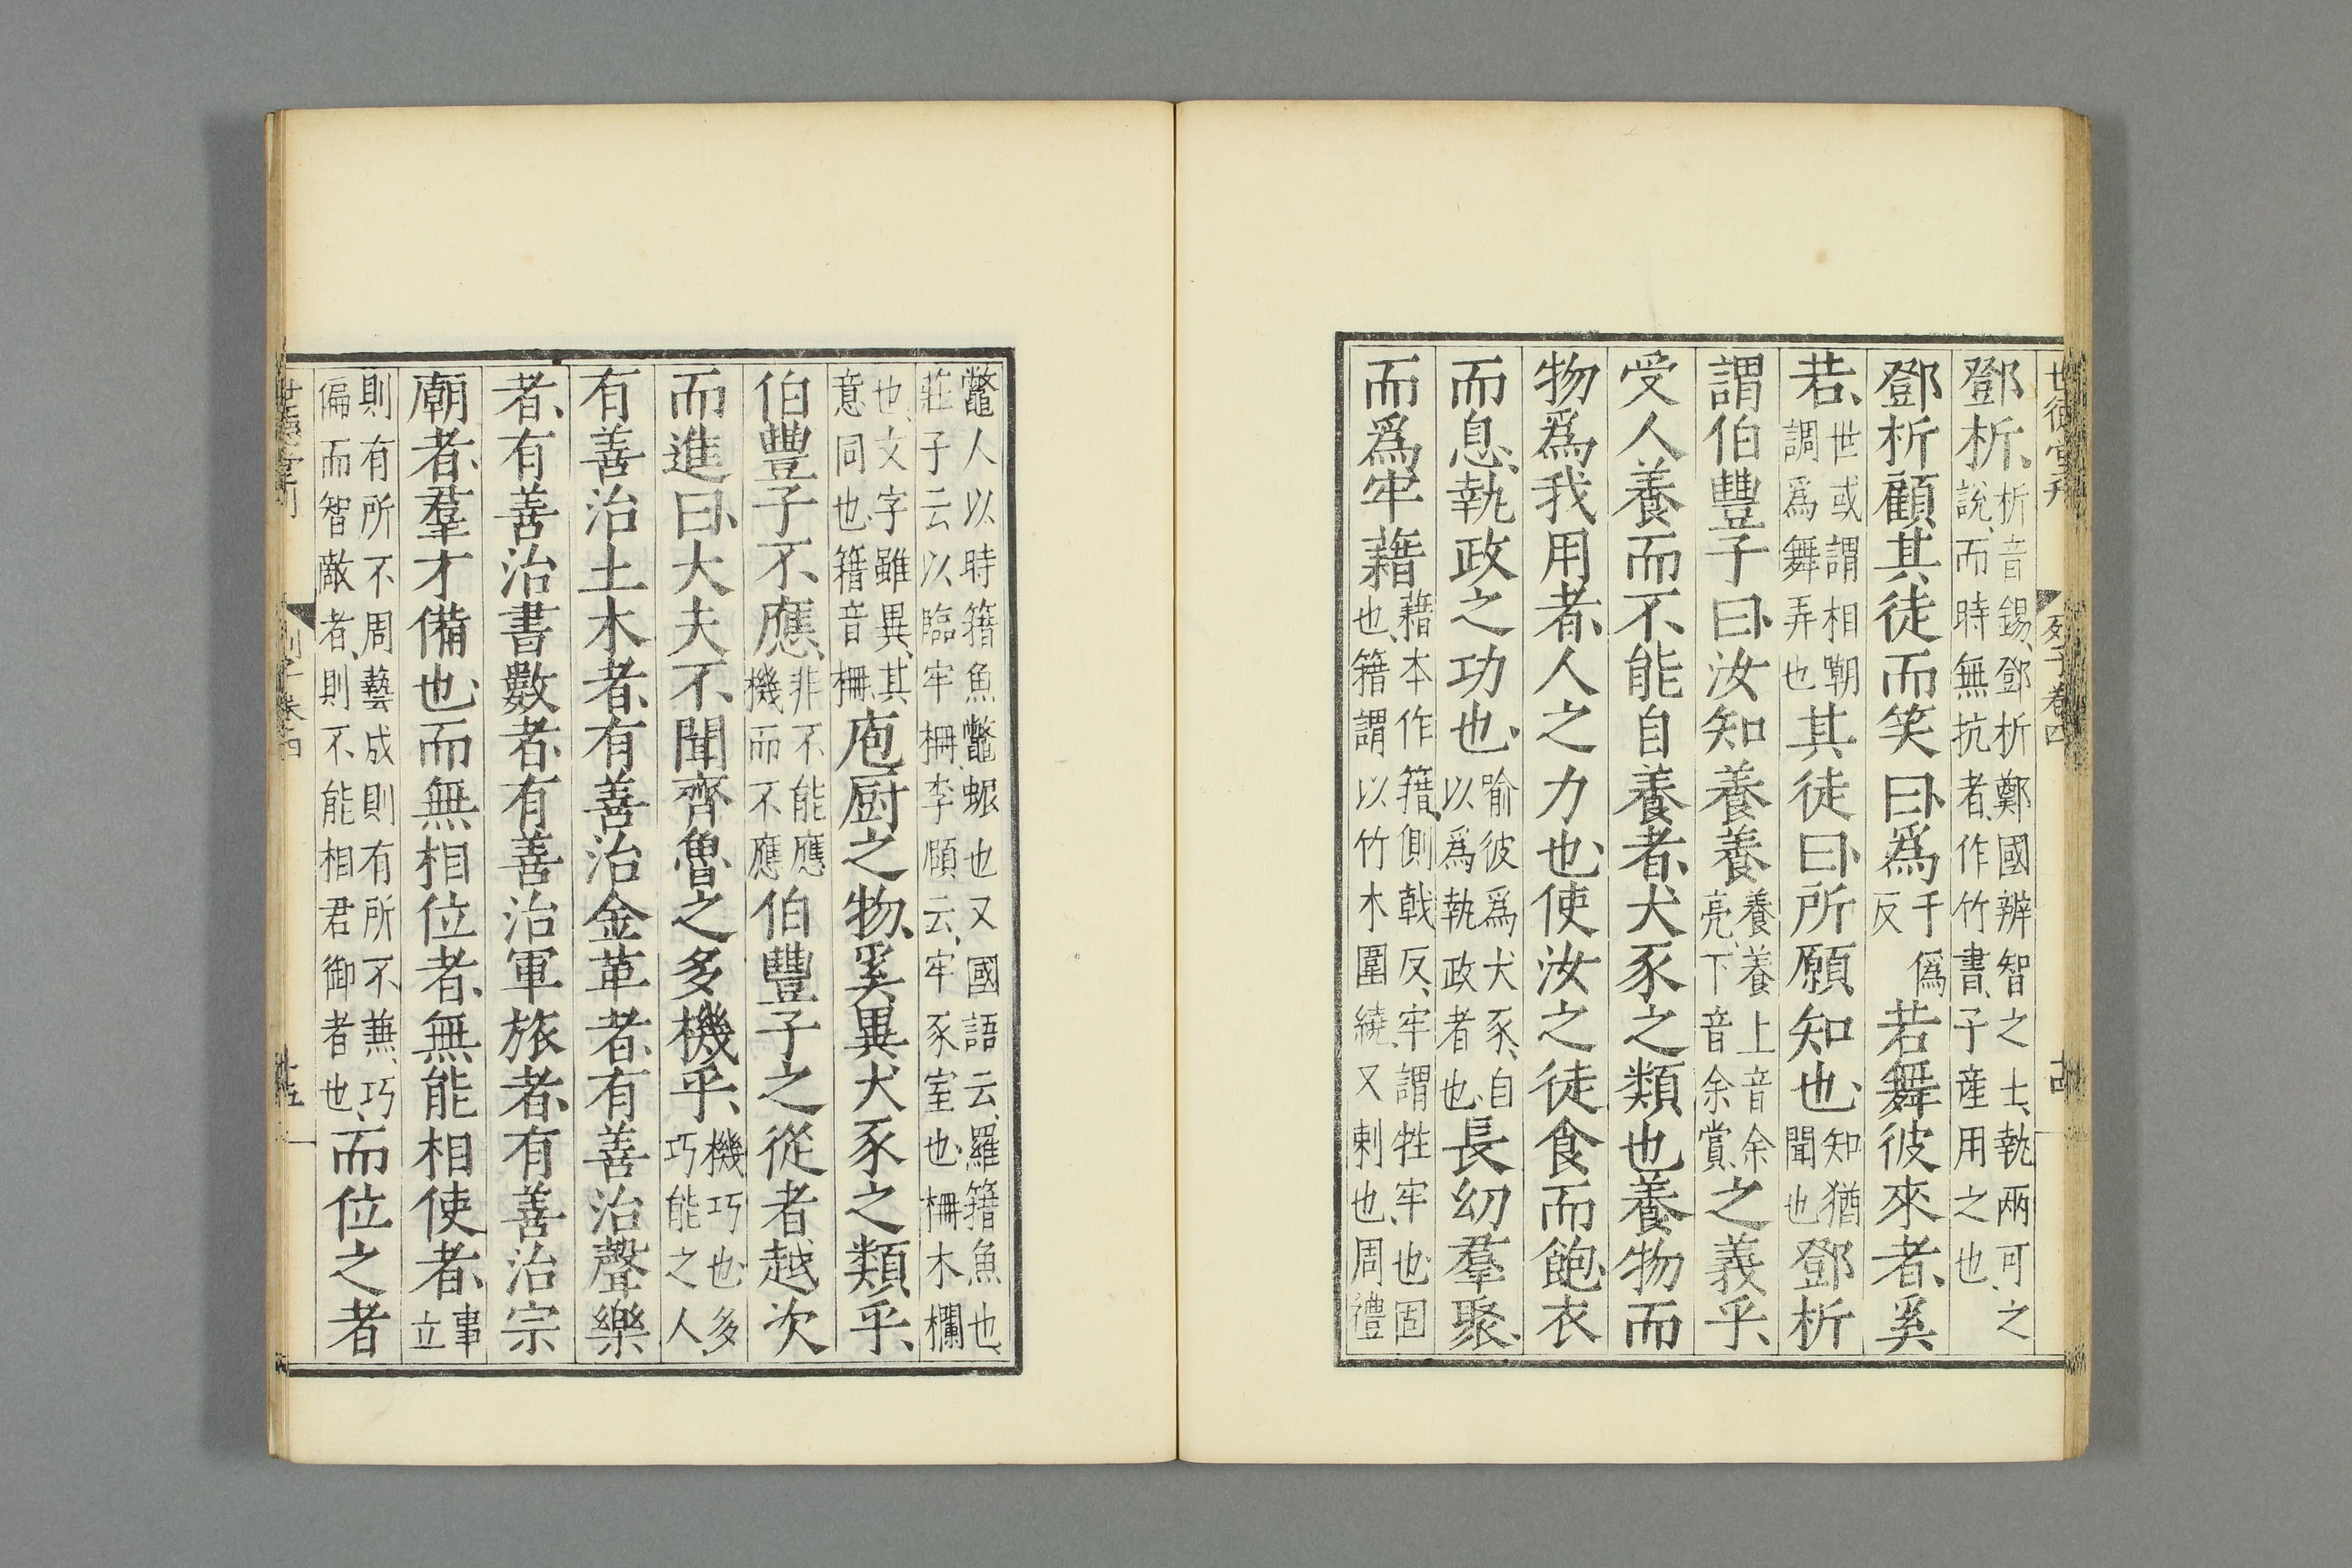 鄧析、析音錫、鄧析鄭國辨智之士、執兩可、之說、而時無抗者、作竹書、子産用之也、
鄧析顧其徒而笑曰、爲千僞反若舞彼來者、奚
若、世或謂相嘲調爲舞弄也其徒曰、所願知也、知猶聞也鄧析
謂伯豐子曰、汝知養養養養上音余亮、下音余賞、之義乎、
受人養而不能自養者、犬豕之類也養物而
物爲我用者、人之力也、使汝之徒食而飽、衣
而息、執政之功也、喻彼爲犬豕、自以爲執政者也、長幼羣聚、
而爲牢藉藉本作籍、側戟反、牢謂牲牢、也固也、籍謂以竹木圍繞又刺也、周禮
鼈人以時籍魚鼈、蜃也又國語云、羅籍魚也、莊子云以臨牢柵李頤云、牢豕室也、柵木欄
也、文字雖異、其意同也、籍音柵、庖厨之物、奚異犬豕之類乎、
伯豐子不應、非不能應機而不應伯豐子之從者越次
而進曰、大夫不聞齊魯之多機乎、機巧也、多巧能之人、
有善治土木者、有善治金革者、有善治聲樂
者、有善治書數者、有善治軍旅者、有善治宗
廟者、羣才備也、而無相位者、無能相使者、事立
則有所不周藝成則有所不兼、巧偏而智敵者、則不能相君御者也、而位之者